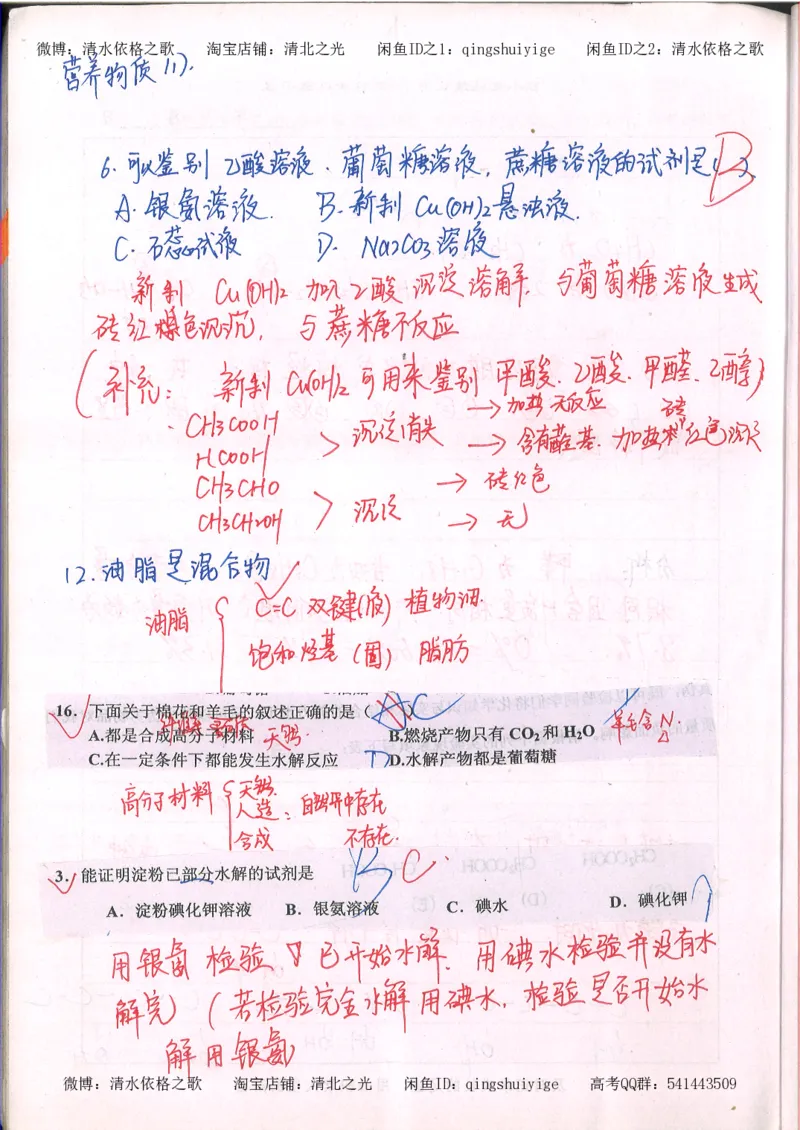 微博：清水依格之歌 淘宝店铺：清北之光 闲鱼ID之1：qingshuiyige 闲鱼ID之2：清水依格之歌
营养物质(1).
6.可以鉴别乙酸溶液、葡萄糖溶液，蔗糖溶液的试剂是( B ).
A.银氨溶液. B.新制Cu(OH)2悬浊液.
C.石蕊试液 D. Na2CO3溶液
新制 Cu(OH)2 加入乙酸沉淀溶解，与葡萄糖溶液生成
砖红色沉沉，与蔗糖不反应
(补充：新制Cu(OH)2可用来鉴别甲酸、乙酸、甲醛、乙醇)
CH3COOH 沉淀消失 → 加热无反应
HCOOH → 含有醛基.加热砖红色沉淀
CH3CHO → 砖红色
CH3CH2OH 沉淀 → 无
12.油脂是混合物
油脂 C=C 双键(液) 植物油.
饱和烃基(固) 脂肪
16. 下面关于棉花和羊毛的叙述正确的是（ ）C
A.都是合成高分子材料 天然. B.燃烧产物只有 CO2 和 H2O 羊毛含N
C.在一定条件下都能发生水解反应 D.水解产物都是葡萄糖
高分子材料 天然
人造：自然界中存在
合成 不存在.
3. 能证明淀粉已部分水解的试剂是 B C.
A. 淀粉碘化钾溶液 B. 银氨溶液 C. 碘水 D. 碘化钾
用银氨 检验 已开始水解，用碘水检验并没有水
解完) (若检验完全水解用碘水，检验是否开始水
解用银氨
微博：清水依格之歌 淘宝店铺：清北之光 闲鱼ID：qingshuiyige 高考QQ群：541443509